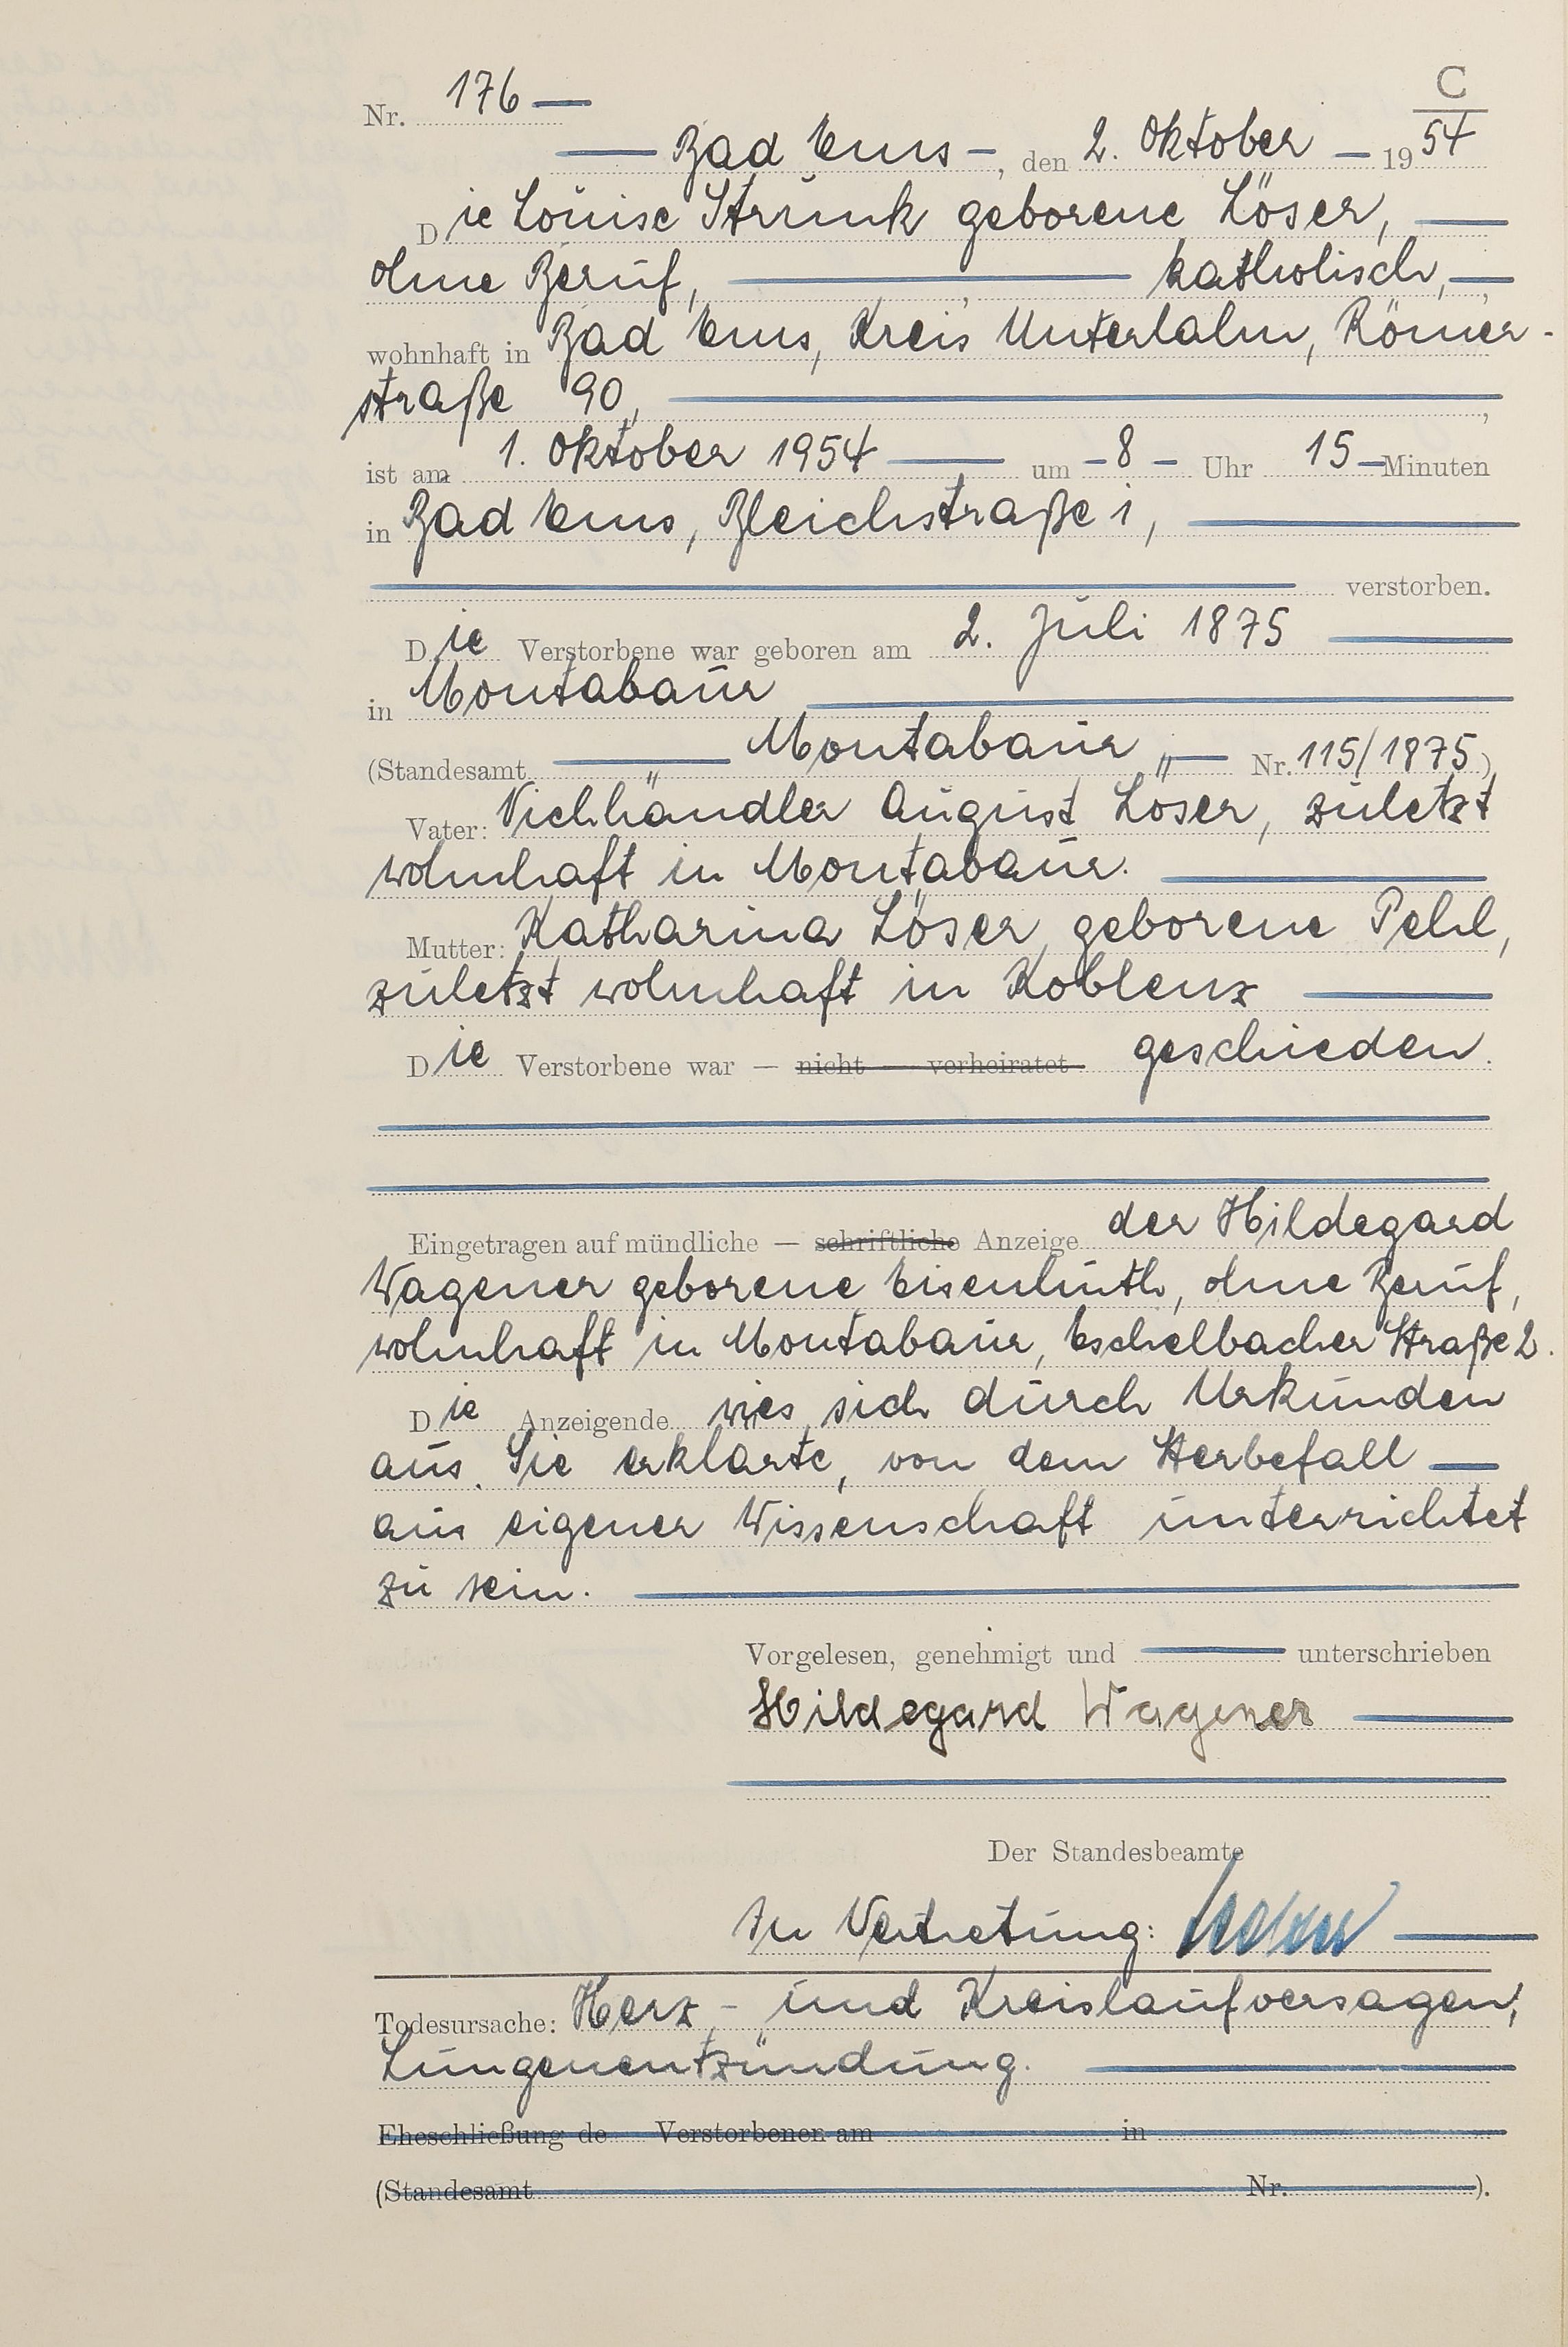 C
Nr. 176 —
— Bad Ems —, den 2. Oktober — 1954
Die Louise Strunk geborene Löser, —
ohne Beruf, — katholisch, —
wohnhaft in Bad Ems, Kreis Unterlahn, Römer-
straße 90, —
ist am 1. Oktober 1954 — um — 8 — Uhr 15 — Minuten
in Bad Ems, Bleichstraße 1, —
— verstorben.
Die Verstorbene war geboren am 2. Juli 1875 —
in Montabaur —
(Standesamt — Montabaur — Nr. 115/1875)
Vater: Viehhändler August Löser, zuletzt
wohnhaft in Montabaur. —
Mutter: Katharina Löser geborene Pehl,
zuletzt wohnhaft in Koblenz —
Die Verstorbene war — nicht — verheiratet geschieden.
Eingetragen auf mündliche — schriftliche Anzeige der Hildegard
Wagener geborene Eisenhuth, ohne Beruf,
wohnhaft in Montabaur, Eschelbacher Straße 2.
Die Anzeigende wies sich durch Urkunden
aus. Sie erklärte, von dem Sterbefall —
aus eigener Wissenschaft unterrichtet
zu sein. —
Vorgelesen, genehmigt und — unterschrieben
Hildegard Wagener —
Der Standesbeamte
In Vertretung:
Todesursache: Herz- und Kreislaufversagen,
Lungenentzündung. —
Eheschließung de Verstorbenen am in
(Standesamt Nr. ).